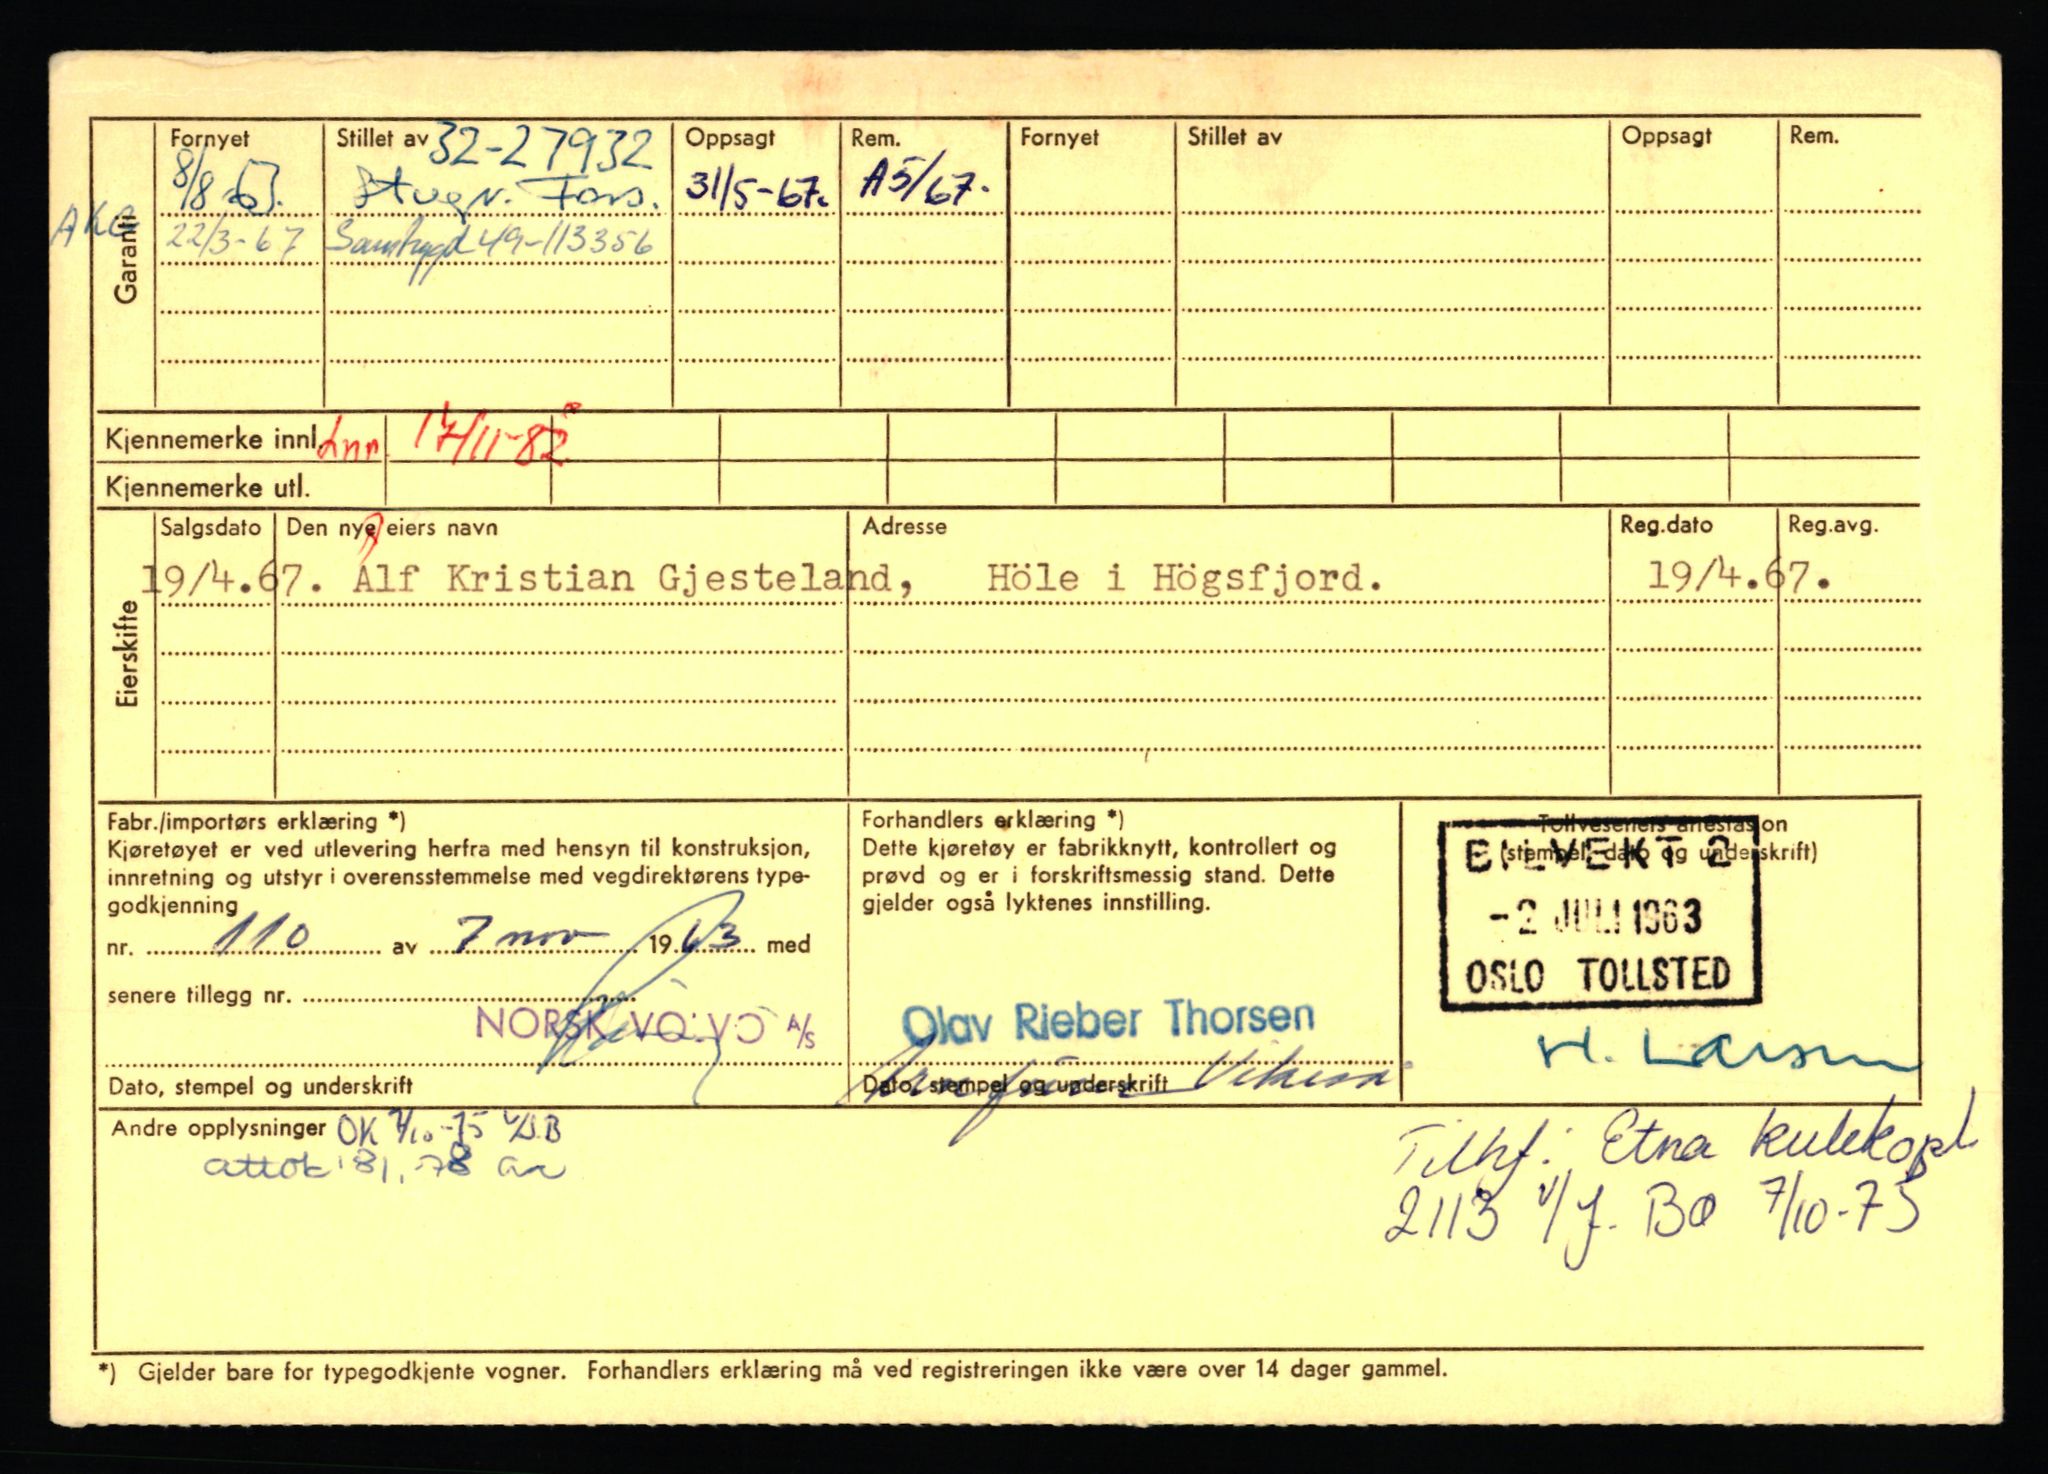 Fornyet Stillet av 32-27932 Oppsagt Rem. Fornyet Stillet av Oppsagt Rem.
8/8 63. Fors. 31/5-67. A5/67.
22/3-67 Samtrygd 49-113356
Garanti
Kjennemerke innl. Inn 17/11-82
Kjennemerke utl.
Eierskifte
Salgsdato Den nye eiers navn Adresse Reg.dato Reg.avg.
19/4.67. Alf Kristian Gjesteland, Höle i Högsfjord. 19/4.67.
Fabr./importørs erklæring *)
Kjøretøyet er ved utlevering herfra med hensyn til konstruksjon,
innretning og utstyr i overensstemmelse med vegdirektørens type-
godkjenning
nr. 110 av 7 nov 1963 med
senere tillegg nr.
NORSK VOLVO A/S
Dato, stempel og underskrift
Forhandlers erklæring *)
Dette kjøretøy er fabrikknytt, kontrollert og
prøvd og er i forskriftsmessig stand. Dette
gjelder også lyktenes innstilling.
Olav Rieber Thorsen
Dato, stempel og underskrift
Tollvesenets attestasjon
(stempel, dato og underskrift)
BILVEKT 2
-2 JULI 1963
OSLO TOLLSTED
H. Larsen
Andre opplysninger OK 7/10-75
attok 81, 78
Tilhf: Etna kulekopl.
2113 v/J. Bø 7/10-75
*) Gjelder bare for typegodkjente vogner. Forhandlers erklæring må ved registreringen ikke være over 14 dager gammel.